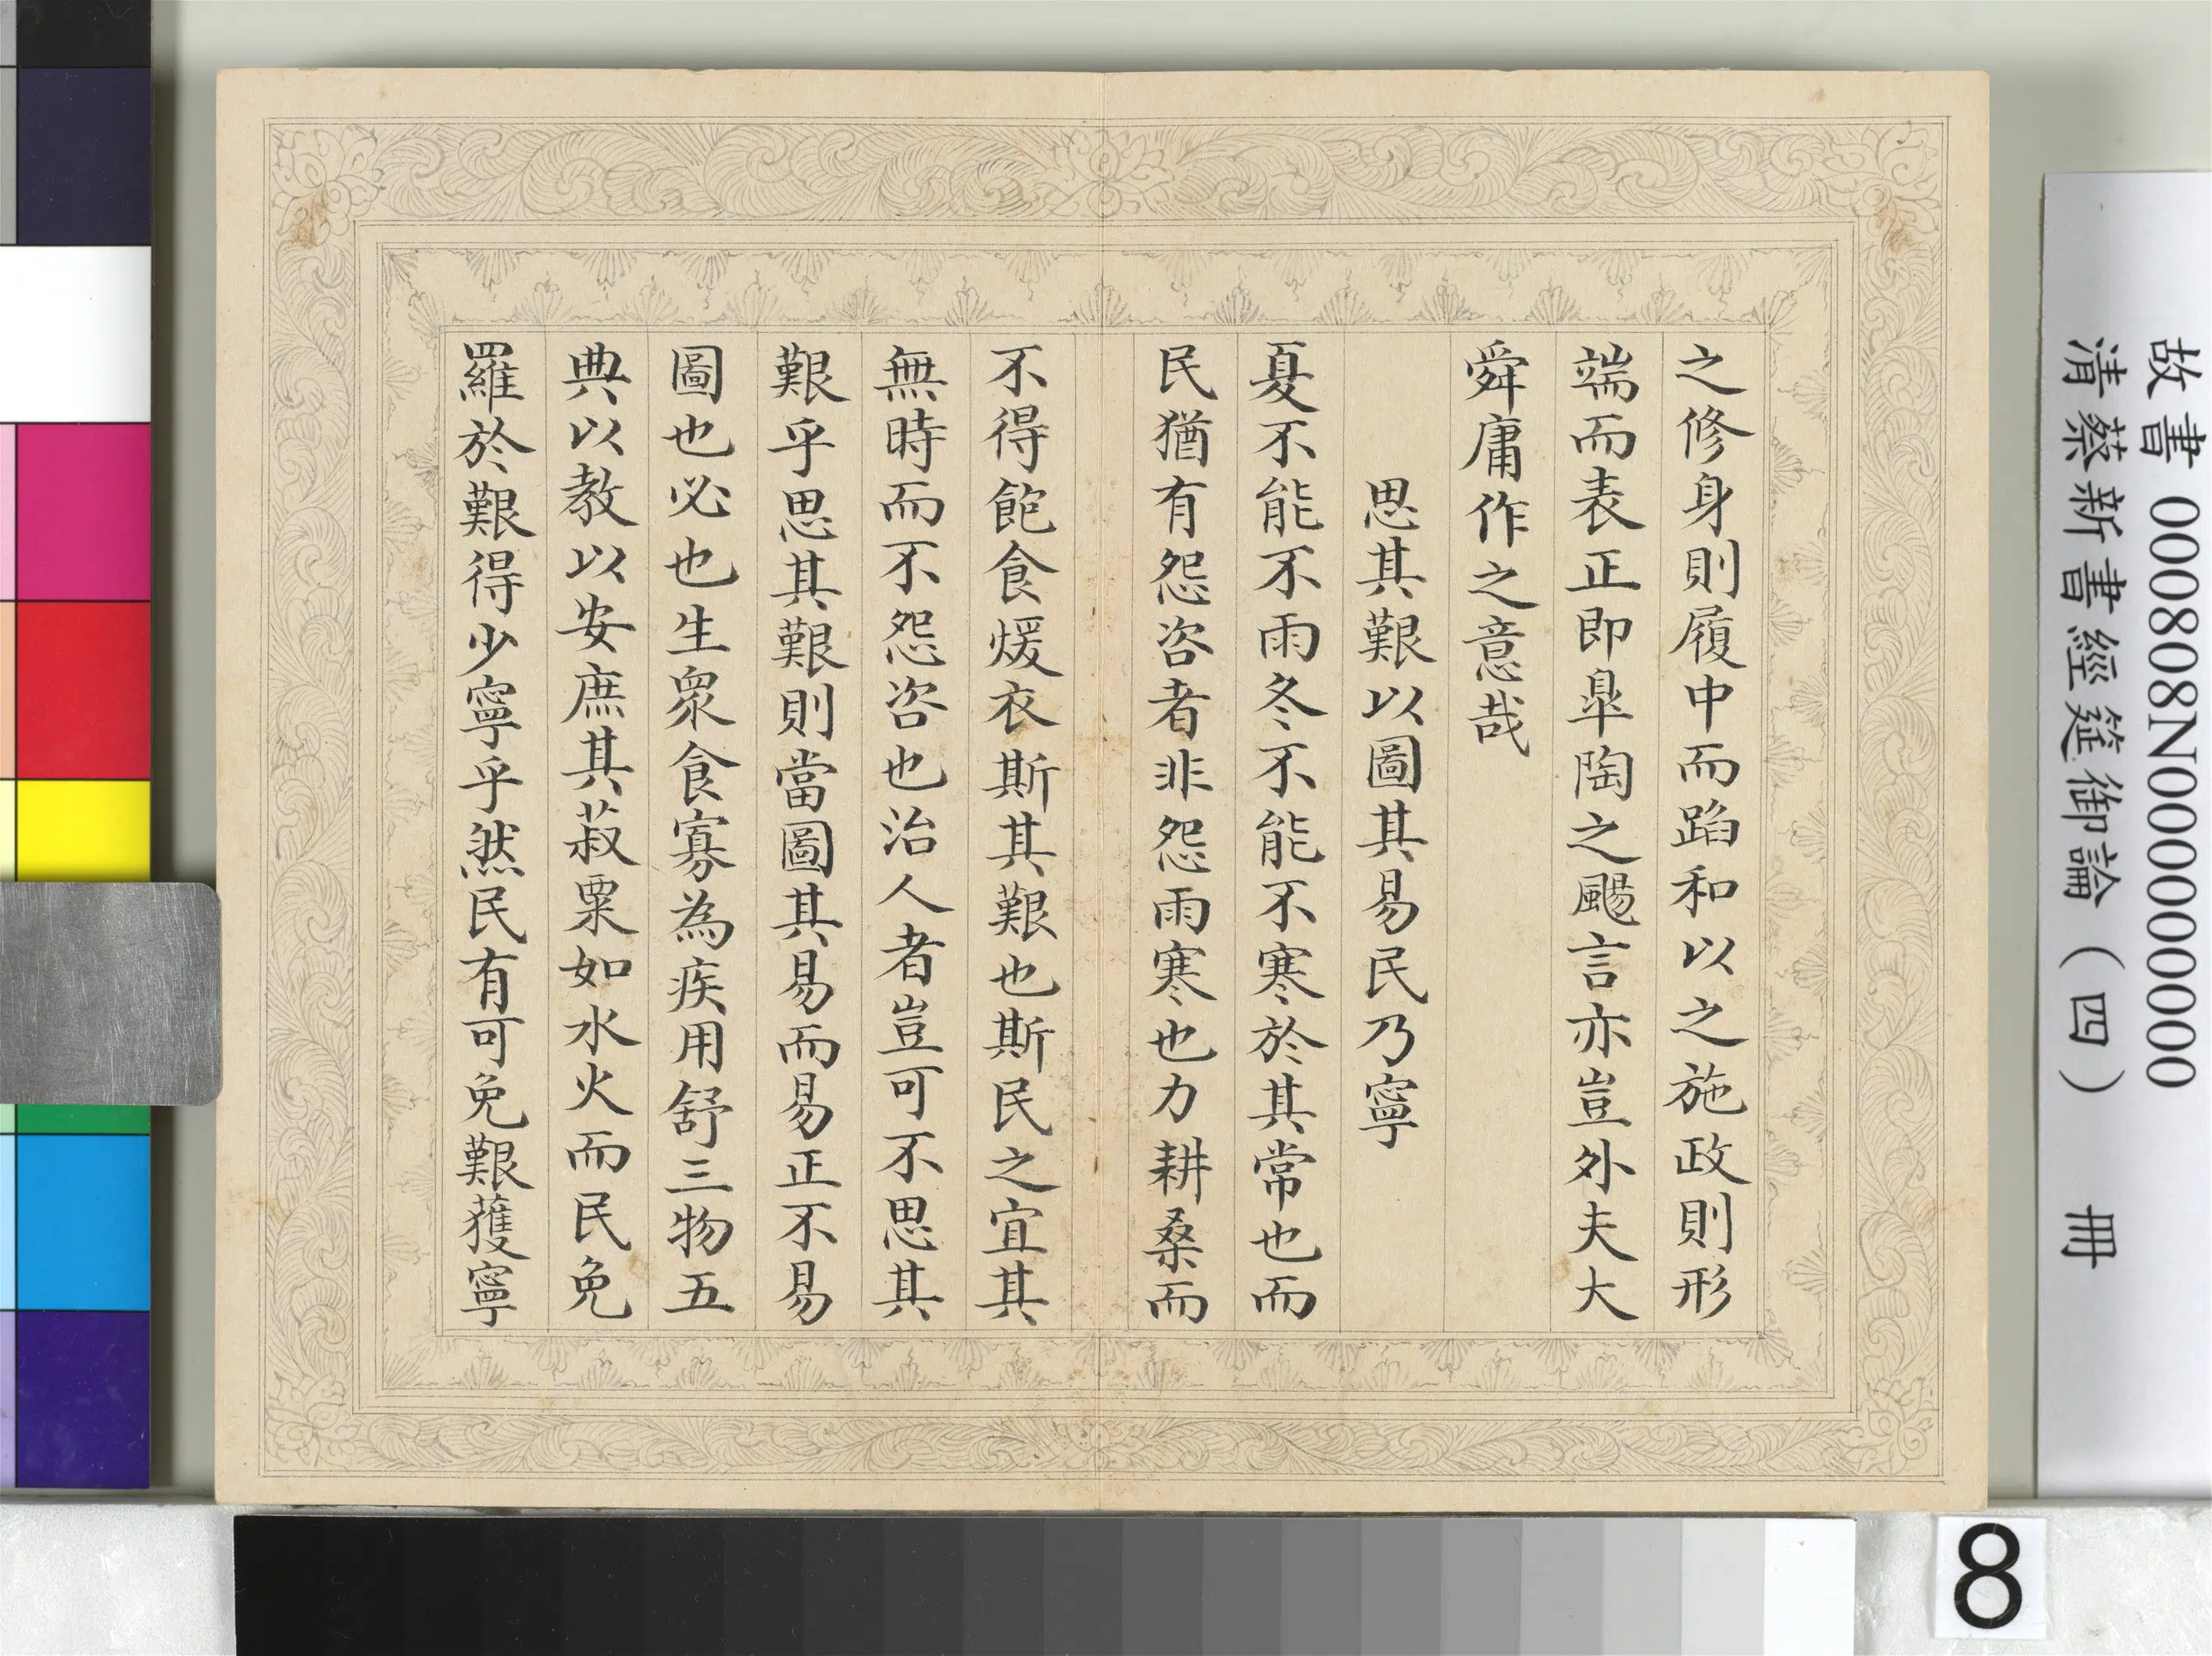 之修身則履中而蹈和以之施政則形
端而表正即臯陶之颺言亦豈外夫大
舜庸作之意哉
思其艱以圖其易民乃寧
夏不能不雨冬不能不寒於其常也而
民猶有怨咨者非怨雨寒也力耕桑而
不得飽食煖衣斯其艱也斯民之宜其
無時而不怨咨也治人者豈可不思其
艱乎思其艱則當圖其易而易正不易
圖也必也生衆食寡為疾用舒三物五
典以教以安庶其菽粟如水火而民免
羅於艱得少寧乎然民有可免艱獲寧
故書 000808N000000000
清蔡新書經筵御論（四） 冊
8